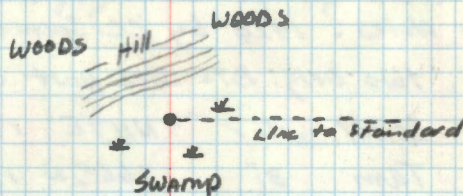 WOODS
WOODS
Hill
Line to Standard
SWAMP